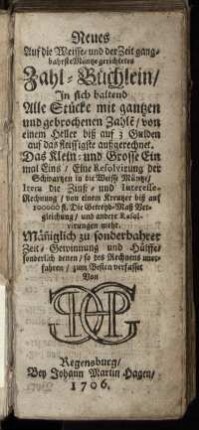 Neues
Auf die Weisse und der Zeit gang-
bahrste Müntz gerichtetes
Zahl-Büchlein/
In sich haltend
Alle Stücke mit gantzen
und gebrochenen Zahlē/ von
einem Heller biß auf 3 Gulden
auf das fleissigste außgerechnet.
Das Klein- und Grosse Ein
mal Eins/ Eine Resolvirung der
Schwartzen in die Weisse Müntz/
Item die Zinß- und Interesse-
Rechnung/ von einem Kreutzer biß auf
100000 fl. Die Getreyd-Maß Ver-
gleichung/ und andere Resol-
virungen mehr.
Mäñiglich zu sonderbahrer
Zeit-Gewinnung und Hülffe/
sonderlich denen/ so des Rechnens uner-
fahren/ zum Besten verfasset
Von
Regensburg/
Bey Johann Martin Hagen/
1706.